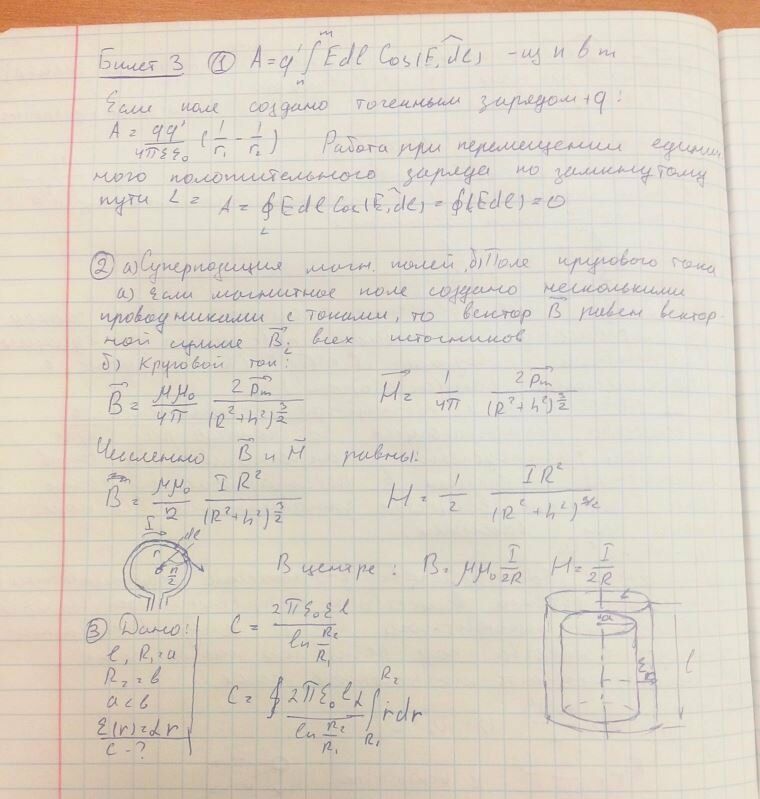 Билет 3 ① A = q' ∫ₙᵐ E dl Cos(E,^dl) – из n в m
Если поле создано точечным зарядом +q:
A = qq'/4πεε₀ (1/r₁ - 1/r₂) Работа при перемещении единич
ного положительного заряда по замкнутому
пути L = A = ∮_L E dl Cos(E,^dl) = ∮(E dl) = 0
② а) Суперпозиция магн. полей, б) Поле кругового тока
а) Если магнитное поле создано несколькими
проводниками с токами, то вектор B⃗ равен вектор-
ной сумме B⃗ᵢ всех источников
б) Круговой ток:
B⃗ = μμ₀/4π 2p⃗ₘ/(R²+h²)^(3/2) H⃗ = 1/4π 2p⃗ₘ/(R²+h²)^(3/2)
Численно B⃗ и H⃗ равны:
B = μμ₀/2 IR²/(R²+h²)^(3/2) H = 1/2 IR²/(R²+h²)^(3/2)
I dl
r
π/2
В центре: B = μμ₀ I/2R H = I/2R
③ Дано:
l, R₁=a
R₂=b
a<b
ε(r)=αr
C-?
C = 2πε₀εl/ln R₂/R₁
C = ∮ 2πε₀lα/ln R₂/R₁ ∫_R₁^R₂ r dr
b
a
l